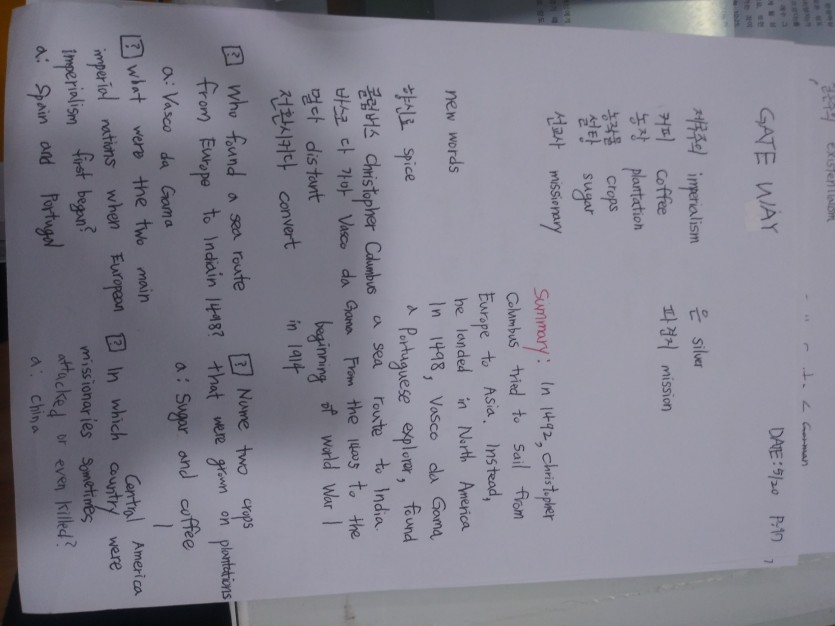 GATE WAY
DATE: 5/20 P.17,
제국주의 imperialism
커피 coffee
농장 plantation
농작물 crops
설탕 sugar
선교사 missionary
은 silver
파견지 mission
new words
향신료 spice
콜럼버스 Christopher Columbus
바스코 다 가마 Vasco da Gama
멀다 distant
전환시키다 convert
Summary: In 1492, Christopher
Columbus tried to sail from
Europe to Asia. Instead,
he landed in North America
In 1498, Vasco da Gama,
a Portuguese explorer, found
a sea route to India.
From the 1400s to the
beginning of World War 1
in 1914
? Who found a sea route
from Europe to India in 1498?
a: Vasco da Gama
? What were the two main
imperial nations when European
imperialism first began?
a: Spain and Portugal
? Name two crops
that were grown on plantations
Central America
a: Sugar and coffee
? In which country were
missionaries sometimes
attacked or even killed?
a: China